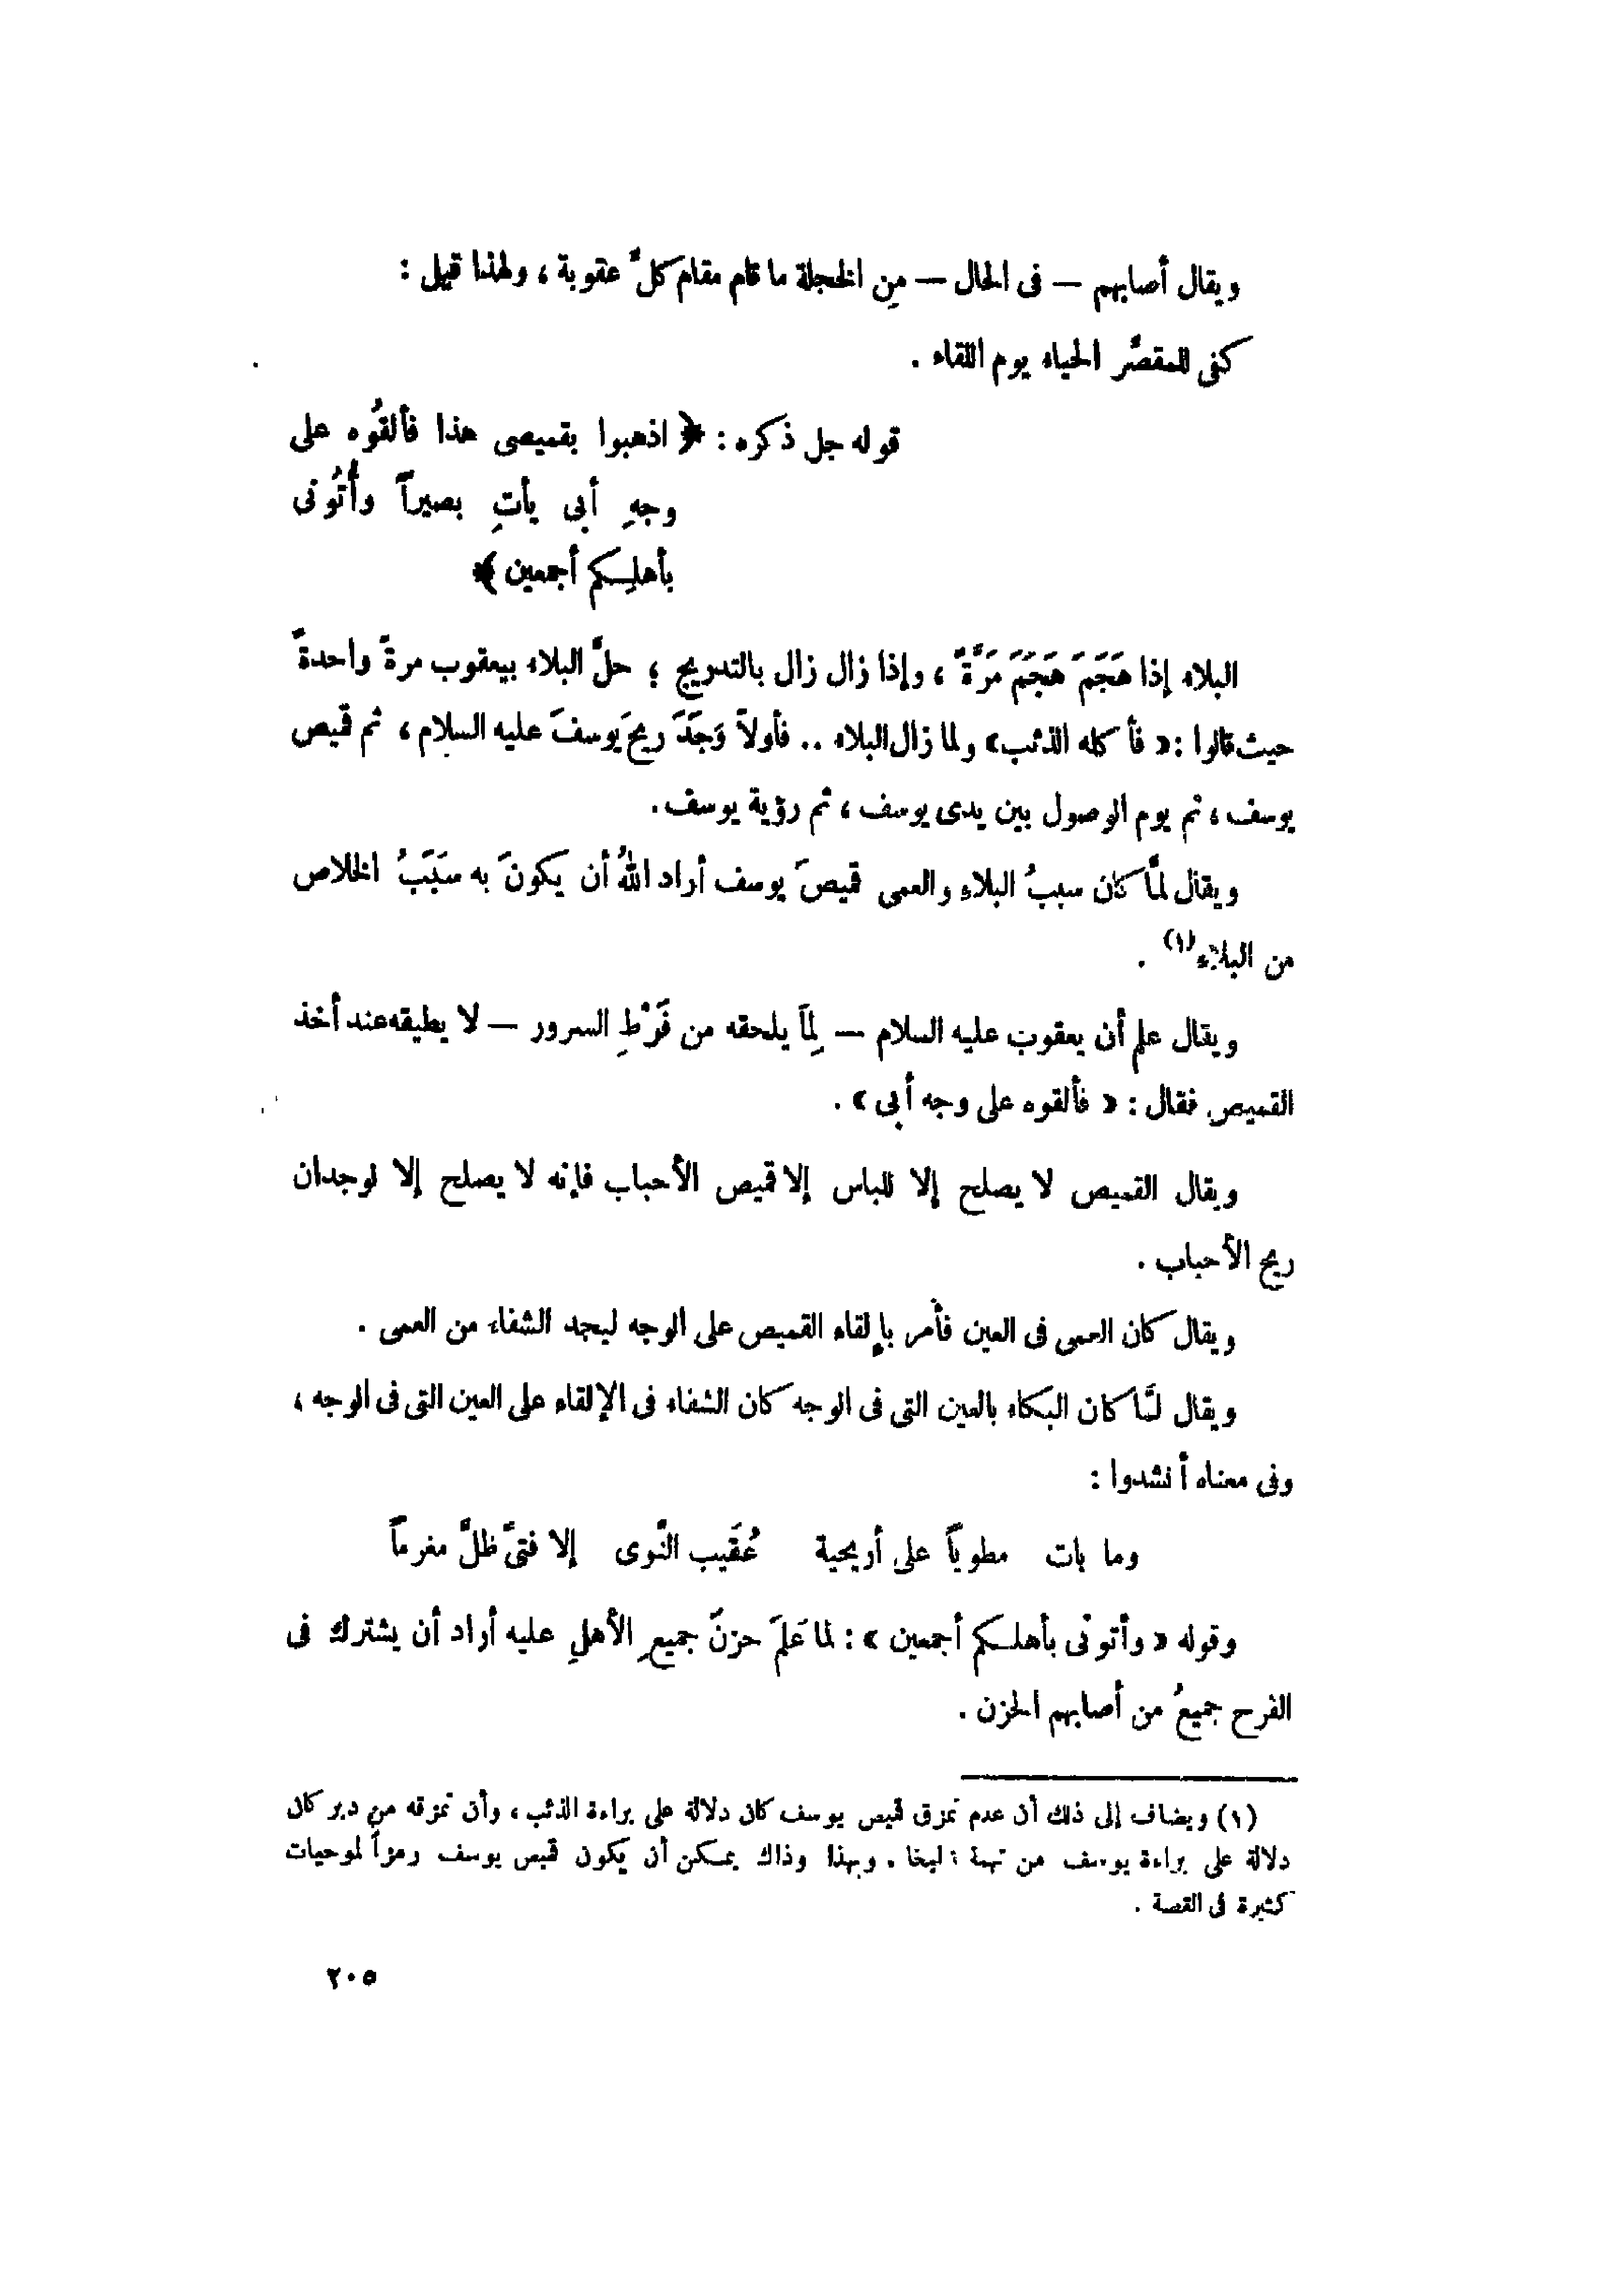 ويقال أصابهم — فى الحال — مِن الخجلة ما قام مقام كلِّ عقوبة ، ولهذا قيل :
كفى للمقصِّر الحياء يوم اللقاء .
قوله جل ذكره : ﴿ اذهبوا بقميصى هذا فألقُوه على
وجهِ أبى يأتِ بصيراً وأْتُونى
بأهلِكم أجمعين ﴾
البلاء إذا هَجَمَ هَجَمَ مَرَّةً ، وإذا زال زال بالتدريج ؛ حلَّ البلاء بيعقوب مرةً واحدةً
حيث قالوا : « فأكله الذئب » ولما زال البلاء .. فأولاً وَجَدَ ريحَ يوسفَ عليه السلام ، ثم قميص
يوسف ، ثم يوم الوصول بين يدى يوسف ، ثم رؤية يوسف .
ويقال لمَّا كان سببُ البلاءِ والعمى قميصَ يوسف أراد اللهُ أن يكونَ به سَبَبُ الخلاص
من البلاء (١) .
ويقال علم أن يعقوب عليه السلام — لِمَا يلحقه من فَرْطِ السرور — لا يطيقه عند أخذ
القميص فقال : « فألقوه على وجه أبى » .
ويقال القميص لا يصلح إلا للباس إلا قميص الأحباب فإنه لا يصلح إلا لوجدان
ريح الأحباب .
ويقال كان العمى فى العين فأمر بإلقاء القميص على الوجه ليجد الشفاء من العمى .
ويقال لمَّا كان البكاء بالعين التى فى الوجه كان الشفاء فى الإلقاء على العين التى فى الوجه ،
وفى معناه أنشدوا :
وما بات مطوياً على أريحية عُقَيب النَّوى إلا فتىً ظلَّ مغرماً
وقوله « وأتونى بأهلكم أجمعين » : لما عَلِمَ حزنَ جميعِ الأهلِ عليه أراد أن يشترك فى
الفرح جميعُ من أصابهم الحزن .
(١) ويضاف إلى ذلك أن عدم تمزق قميص يوسف كان دلالة على براءة الذئب ، وأن تمزقه من دبر كان
دلالة على براءة يوسف من تهمة زليخا . وبهذا وذاك يمكن أن يكون قميص يوسف رمزاً لموحيات
كثيرة فى القصة .
٢٠٥